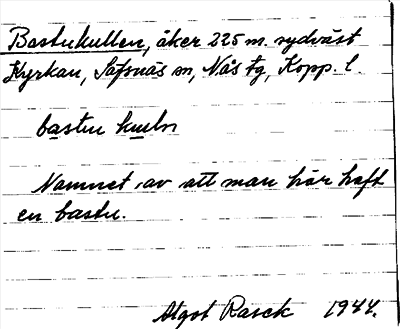 Bastukullen, åker 225 m. sydväst
Kyrkan, Säfsnäs sn, Nås tg, Kopp. l.
bastu kuln
Namnet av att man här haft
en bastu.
Algot Rasck 1944.